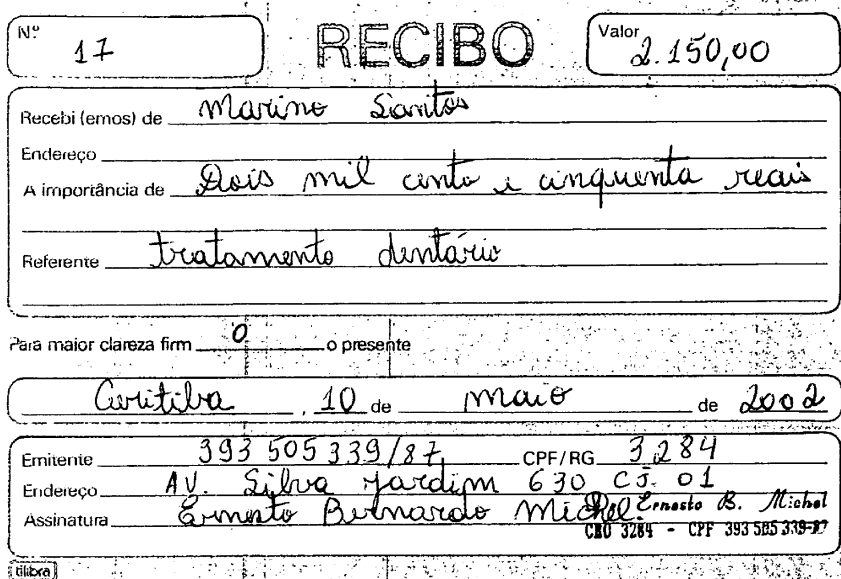 Nº 17 RECIBO Valor 2.150,00
Recebi (emos) de Marino Santos
Endereço
A importância de Dois mil cento e cinquenta reais
Referente tratamento dentário
Para maior clareza firm o o presente
Curitiba, 10 de maio de 2002
Emitente 393 505 339/87 CPF/RG 3284
Endereço AV. Silva Jardim 630 CJ. 01
Assinatura Ernesto Bernardo Michel Ernesto B. Michel
CRO 3284 - CPF 393 505 339-87
tilibra